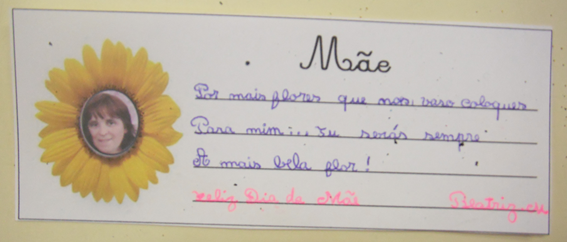 Mãe
Por mais flores que nos vaso coloques
Para mim... tu serás sempre
A mais bela flor!
Feliz Dia da Mãe Beatriz